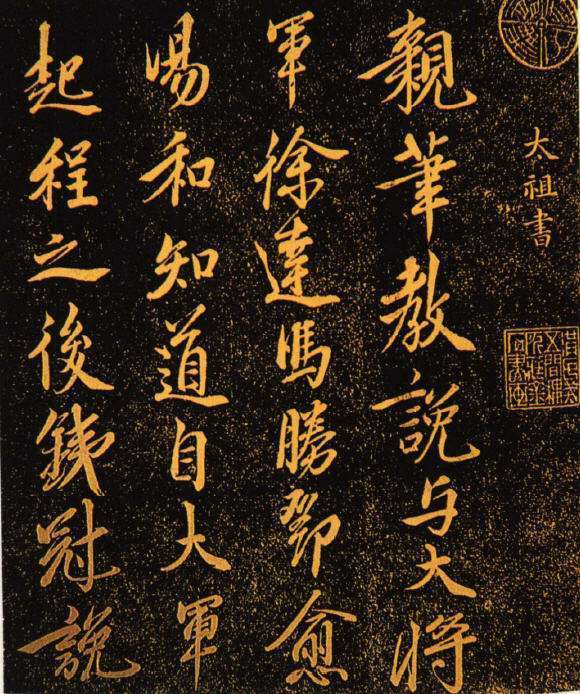 太祖書
親筆教說与大將
軍徐達馮勝鄧愈
湯和知道自大軍
起程之後鉄冠說